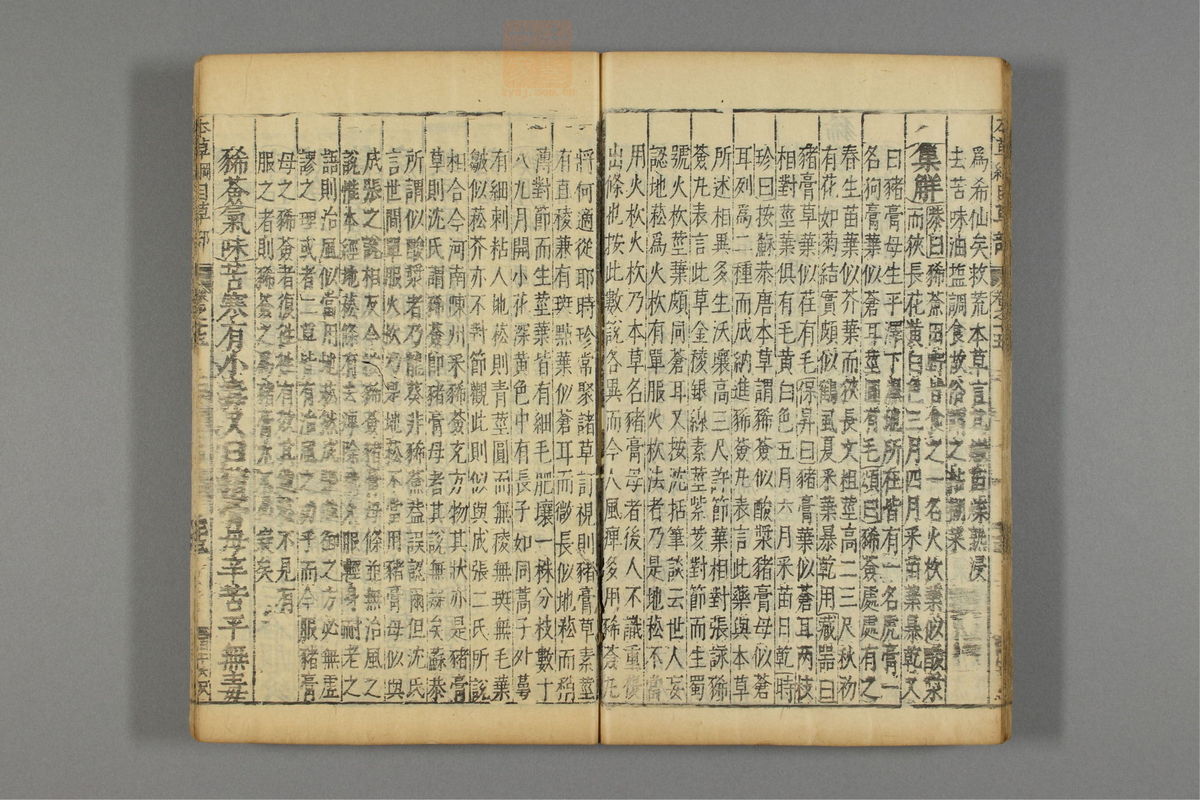 為希仙矣救荒本草言其嫩苗煠熟浸
去苦味油塩調食故俗謂之粘糊菜
集解恭曰豨薟田野皆食之一名火枚葉似酸漿
而狹長花黃白色三月四月采苗葉暴乾又
曰豬膏母生平澤下濕地所在皆有一名虎膏一
名狗膏葉似蒼耳莖圓有毛頌曰豨薟處處有之
春生苗葉似芥葉而狹長文粗莖高二三尺秋初
有花如菊結實頗似鶴虱夏采葉暴乾用藏器曰
豬膏草葉似荏有毛保昇曰豬膏葉似蒼耳兩枝
相對莖葉俱有毛黃白色五月六月采苗日乾時
珍曰按蘇恭唐本草謂豨薟似酸漿豬膏母似蒼
耳列為二種而成訥進豨薟丸表言此藥與本草
所述相異多生沃壤高三尺許節葉相對張詠豨
薟丸表言此草金稜銀線素莖紫荄對節而生蜀
號火枚莖葉頗同蒼耳又按沈括筆談云世人妄
認地菘為火枚有單服火枚法者乃是地菘不當
用火枚火枚乃本草名豬膏母者後人不識重復
出條也按此數說各異而今人風痺多用豨薟丸
將何適從耶時珍常聚諸草訂視則豬膏草素莖
有直稜兼有斑點葉似蒼耳而微長似地菘而稍
薄對節而生莖葉皆有細毛肥壤一株分枝數十
八九月開小花深黃色中有長子如同蒿子外萼
有細刺粘人地菘則青莖圓而無稜無斑無毛葉
皺似菘芥亦不對節觀此則似與成張二氏所說
相合今河南陳州采豨薟充方物其狀亦是豬膏
草則沈氏謂豨薟即豬膏母者其說無疑矣蘇恭
所謂似酸漿者乃龍葵非豨薟葢誤認爾但沈氏
言世間單服火枚乃是地菘不當用豬膏母似與
成張之說相反今於豨薟豬膏母條並無治風之
說惟本經地菘條有去痺除熱久服輕身耐老之
語則治風似當用地菘然成張進御之方必無虛
謬之理或者二草皆有治風之功乎而今服豬膏
母之豨薟者復往往有效其地菘不見有
服之者則豨薟之為豬膏尤不必疑矣
豨薟氣味苦寒有小毒又曰豬膏母辛苦平無毒
本草綱目草部
卷之十五
本草綱目草部
卷之十五